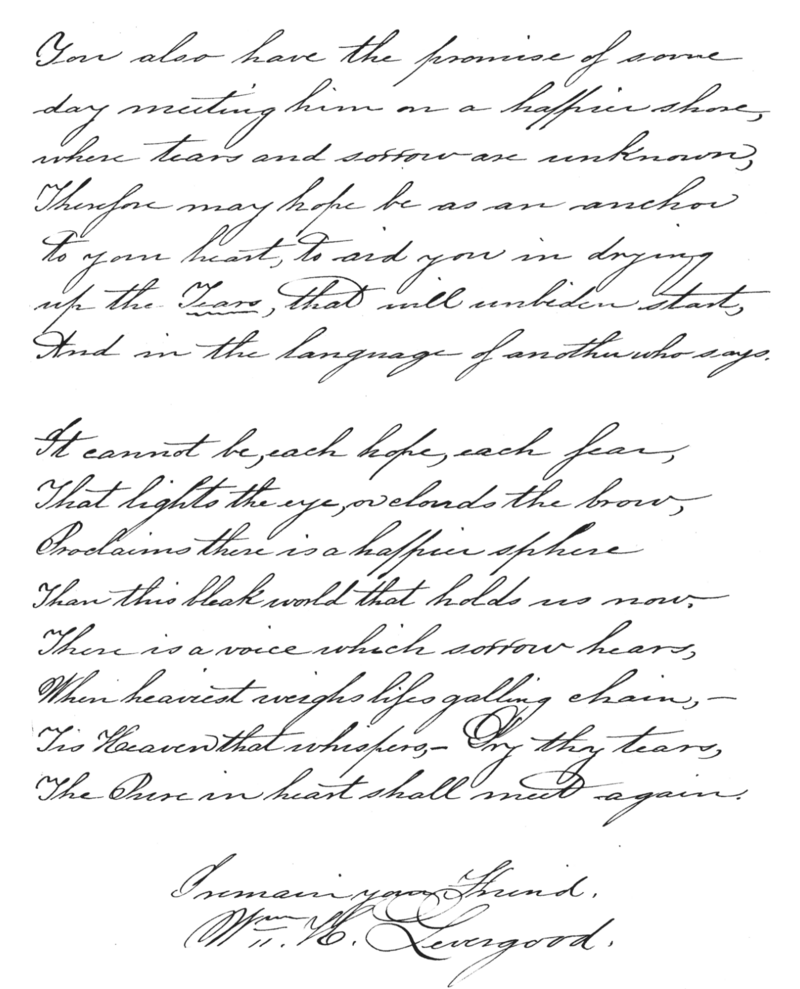 You also have the promise of some
day meeting him on a happier shore,
where tears and sorrow are unknown,
Therefore may hope be as an anchor
to your heart, to aid you in drying
up the Tears, that will unbiden start,
And in the language of another who says.
It cannot be, each hope, each fear,
That lights the eye, or clouds the brow,
Proclaims there is a happier sphere
Than this bleak world that holds us now.
There is a voice which sorrow hears,
When heaviest weighs lifes galling chain,—
Tis Heaven that whispers,— Dry thy tears,
The Pure in heart shall meet again.
I remain your Friend.
Wm. H. Levergood.